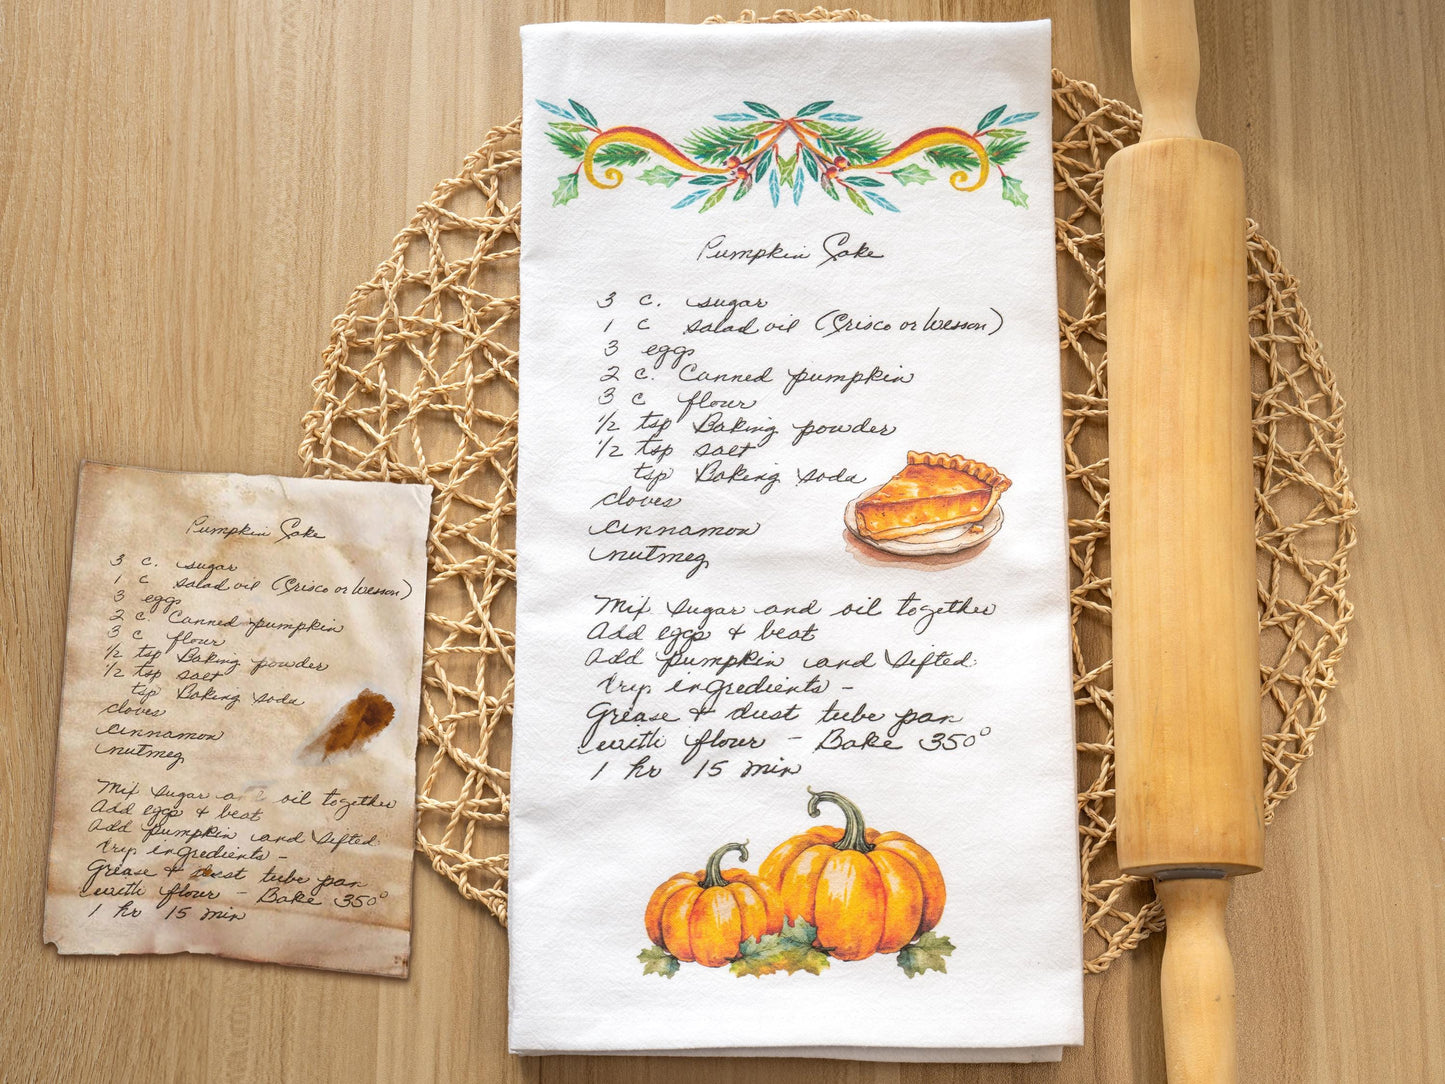 Pumpkin Cake
3 c. sugar
1 c salad oil (Crisco or Wesson)
3 eggs
2 c. Canned pumpkin
3 c flour
1/2 tsp Baking powder
1/2 tsp salt
tsp Baking soda
cloves
cinnamon
nutmeg
Mix sugar and oil together
Add eggs + beat
Add pumpkin and sifted
dry ingredients -
Grease + dust tube pan
with flour - Bake 350°
1 hr 15 min
Pumpkin Cake
3 c. sugar
1 c salad oil (Crisco or Wesson)
3 eggs
2 c. Canned pumpkin
3 c flour
1/2 tsp Baking powder
1/2 tsp salt
tsp Baking soda
cloves
cinnamon
nutmeg
Mix sugar and oil together
Add eggs + beat
Add pumpkin and sifted
dry ingredients -
Grease + dust tube pan
with flour - Bake 350°
1 hr 15 min